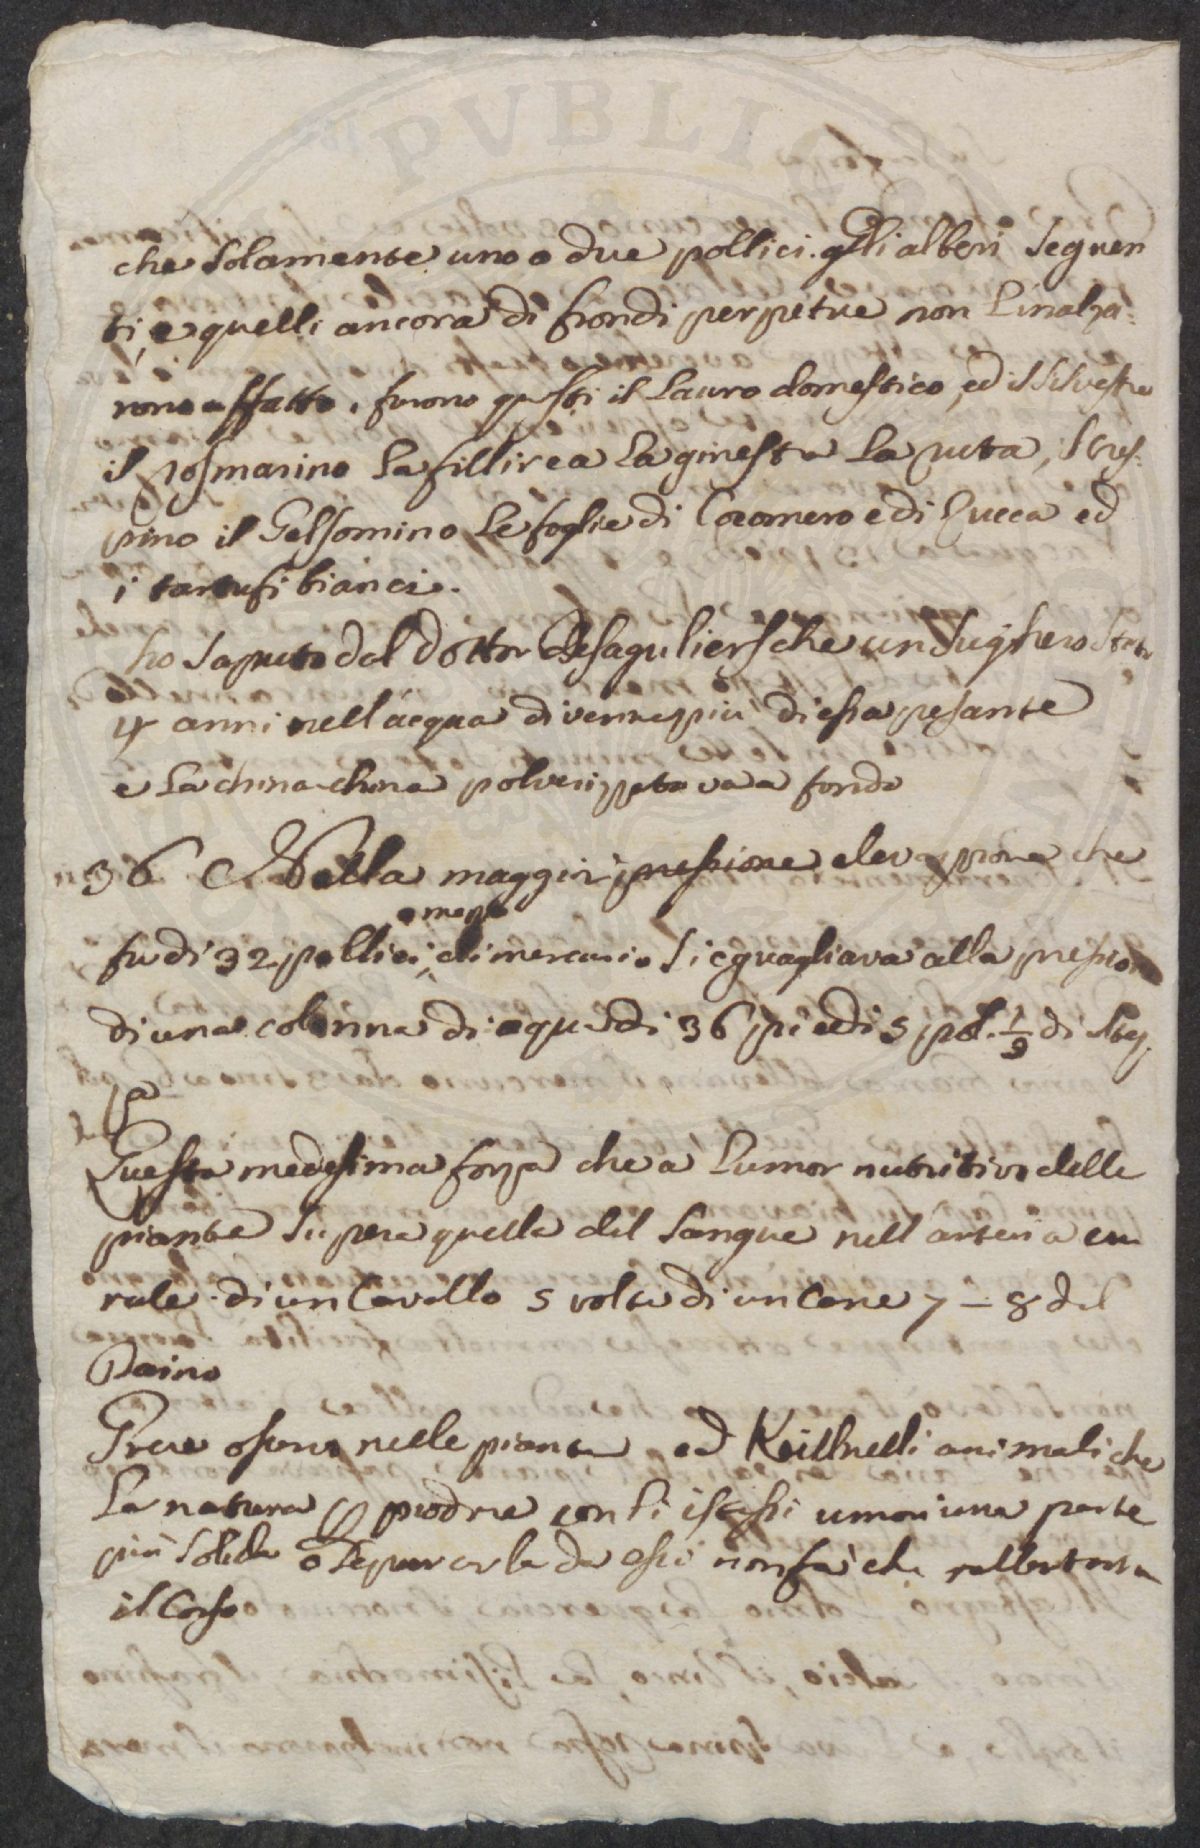 PVBLIC
che solamente uno o due pollici. gli alberi seguen
ti, e quelli ancora di frondi perpetue non l'inalza=
rono affatto. furono questi il Lauro domestico, ed il silvestre
il rosmarino la fillirea la ginestra la ruta, il cres=
pino il Gelsomino le foglie di Cocomero e di Zucca ed
i tartufi bianci.
ho saputo dal dottor Desaguliers che un sughero stato
4 anni nell'acqua divenne più di essa pesante
e la china china polverizzata va a fondo
36 Nella maggior pressione elevazzione che
fu di 32 pollici di mercurio si eguagliava alla pressione
di una colonna di aqua di 36 piedi 5 pol. 1/9 di
Questa medesima forza che a l'umor nutritivo delle
piante supera quella del sangue nell'arteria cru
rale di un Cavallo 5 volte di un Cane 7 – 8 del
Daino
Greu osserva nelle piante ed Keill nelli animali che
la natura p produre con li istessi umori una parte
più solida o separarla da essi non fa che rallentarne
il Corso